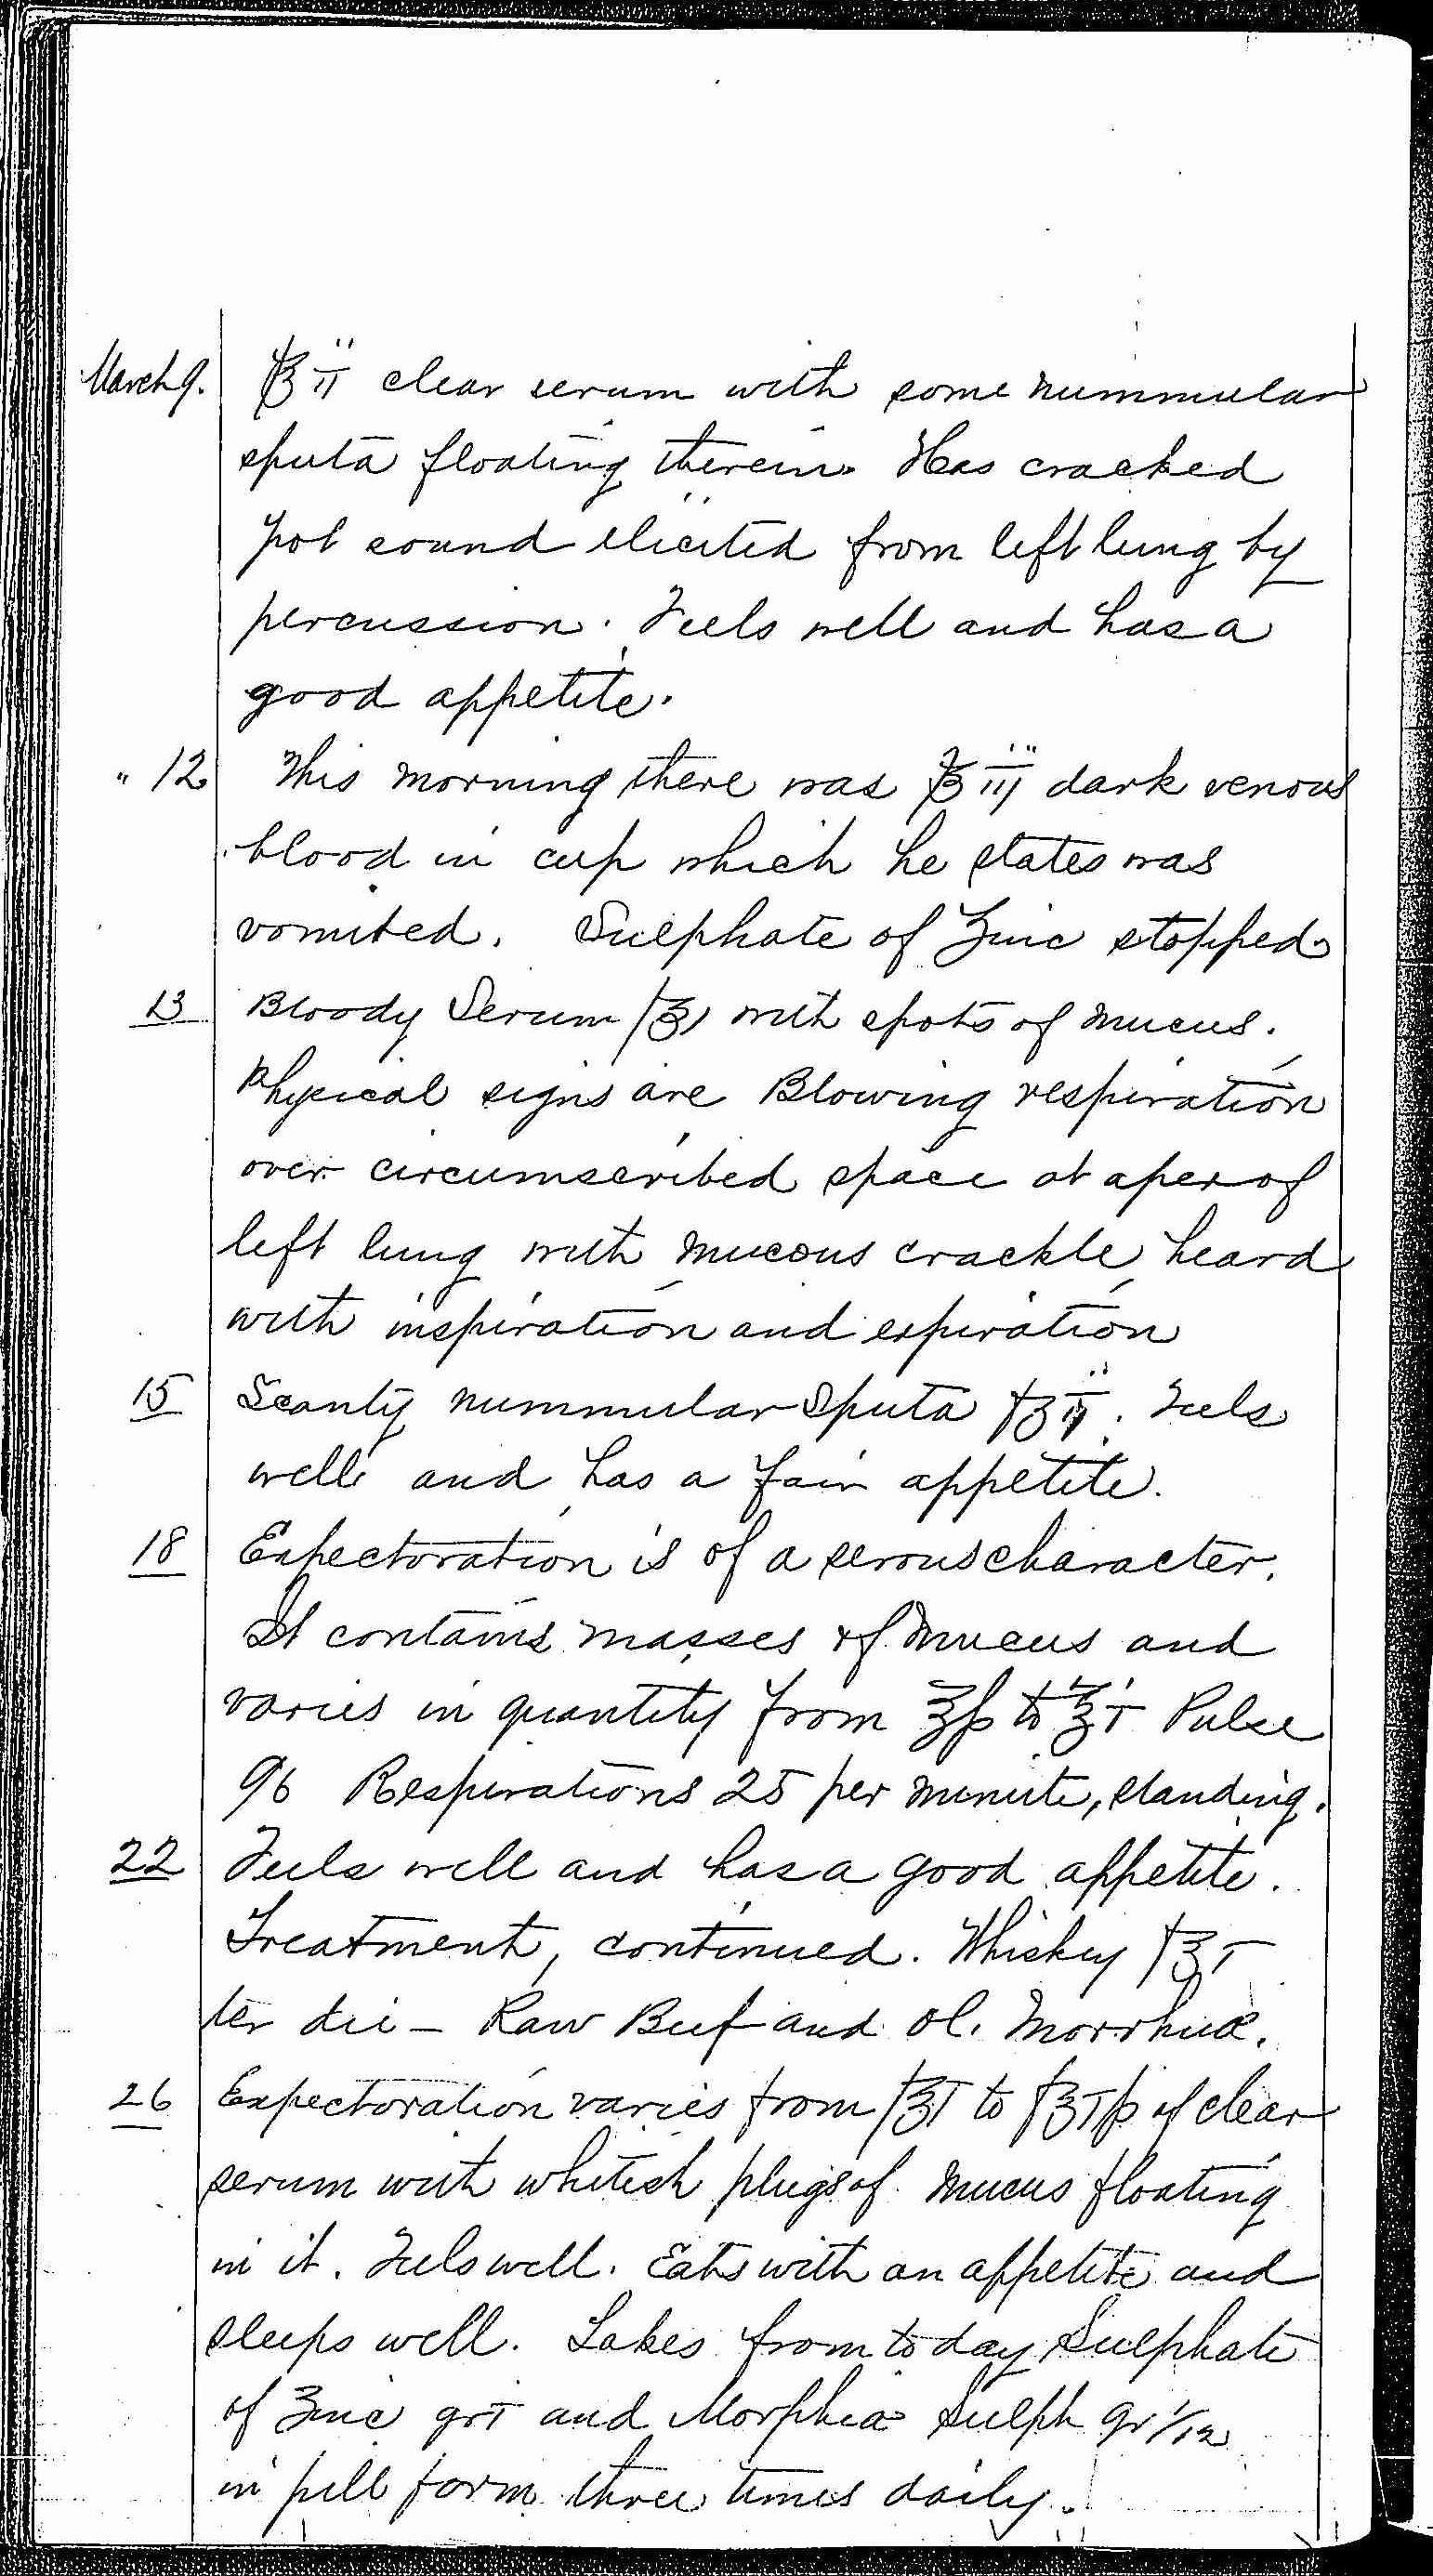 March 9. f℥ ii clear serum with some nummular
sputa floating therein. Has cracked
pot sound elicited from left lung by
percussion. Feels well and has a
good appetite.
" 12 This morning there was f℥ iii dark venous
blood in cup which he states was
vomited. Sulphate of Zinc stopped
13 Bloody Serum f℥i with spots of mucus.
Physical signs are Blowing respiration
over circumscribed space at apex of
left lung with mucous crackle heard
with inspiration and expiration
15 Scanty nummular Sputa f℥ ii. Feels
well and has a fair appetite.
18 Expectoration is of a serous character.
It contains masses of mucus and
varies in quantity from ℥ß to ℥i Pulse
96 Respirations 25 per minute, standing.
22 Feels well and has a good appetite.
Treatment, continued. Whiskey f℥i
ter die – Raw Beef and Ol. Morrhuæ.
26 Expectoration varies from f℥i to f℥iß of clear
serum with whitish plugs of mucus floating
in it. Feels well. Eats with an appetite and
sleeps well. Takes from to day Sulphate
of Zinc gr i and Morphia Sulph gr 1/12
in pill form three times daily.